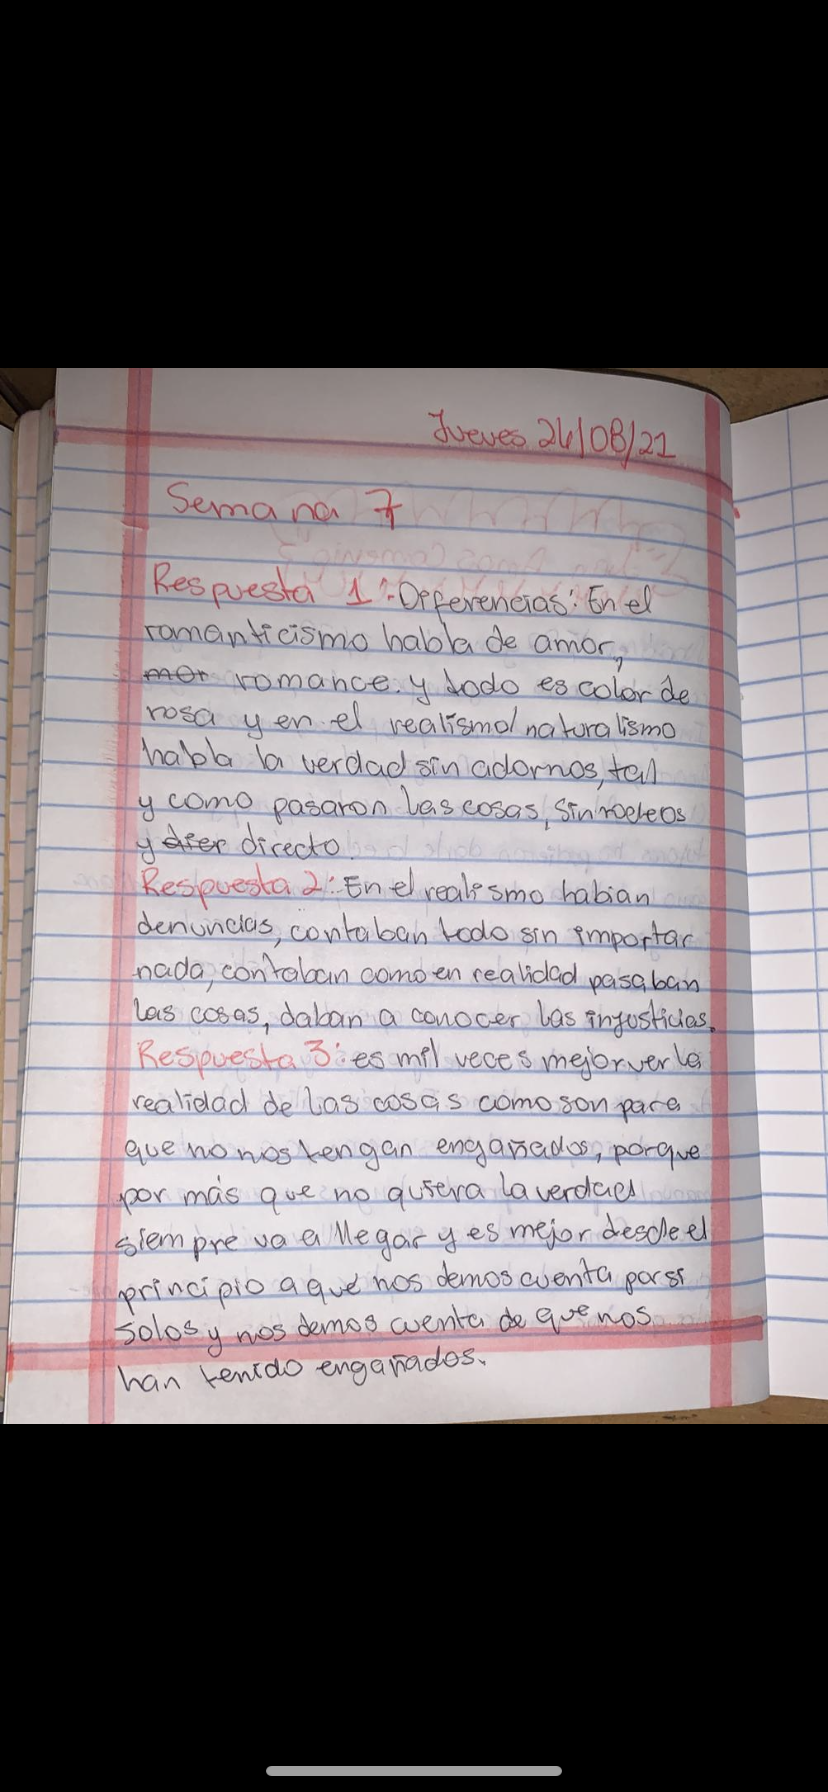 Jueves 24/08/21
Semana 7
Respuesta 1: Diferencias: En el
romanticismo habla de amor,
mor romance. y todo es color de
rosa y en el realismo/naturalismo
habla la verdad sin adornos, tal
y como pasaron las cosas, sin rodeos
y directo.
Respuesta 2: En el realismo habian
denuncias, contaban todo sin importar
nada, contaban como en realidad pasaban
las cosas, daban a conocer las injusticias.
Respuesta 3: es mil veces mejor ver la
realidad de las cosas como son para
que no nos tengan engañados, porque
por más que no quisera la verdad
siempre va a llegar y es mejor desde el
principio a que nos demos cuenta por si
solos y nos demos cuenta de que nos
han tenido engañados.